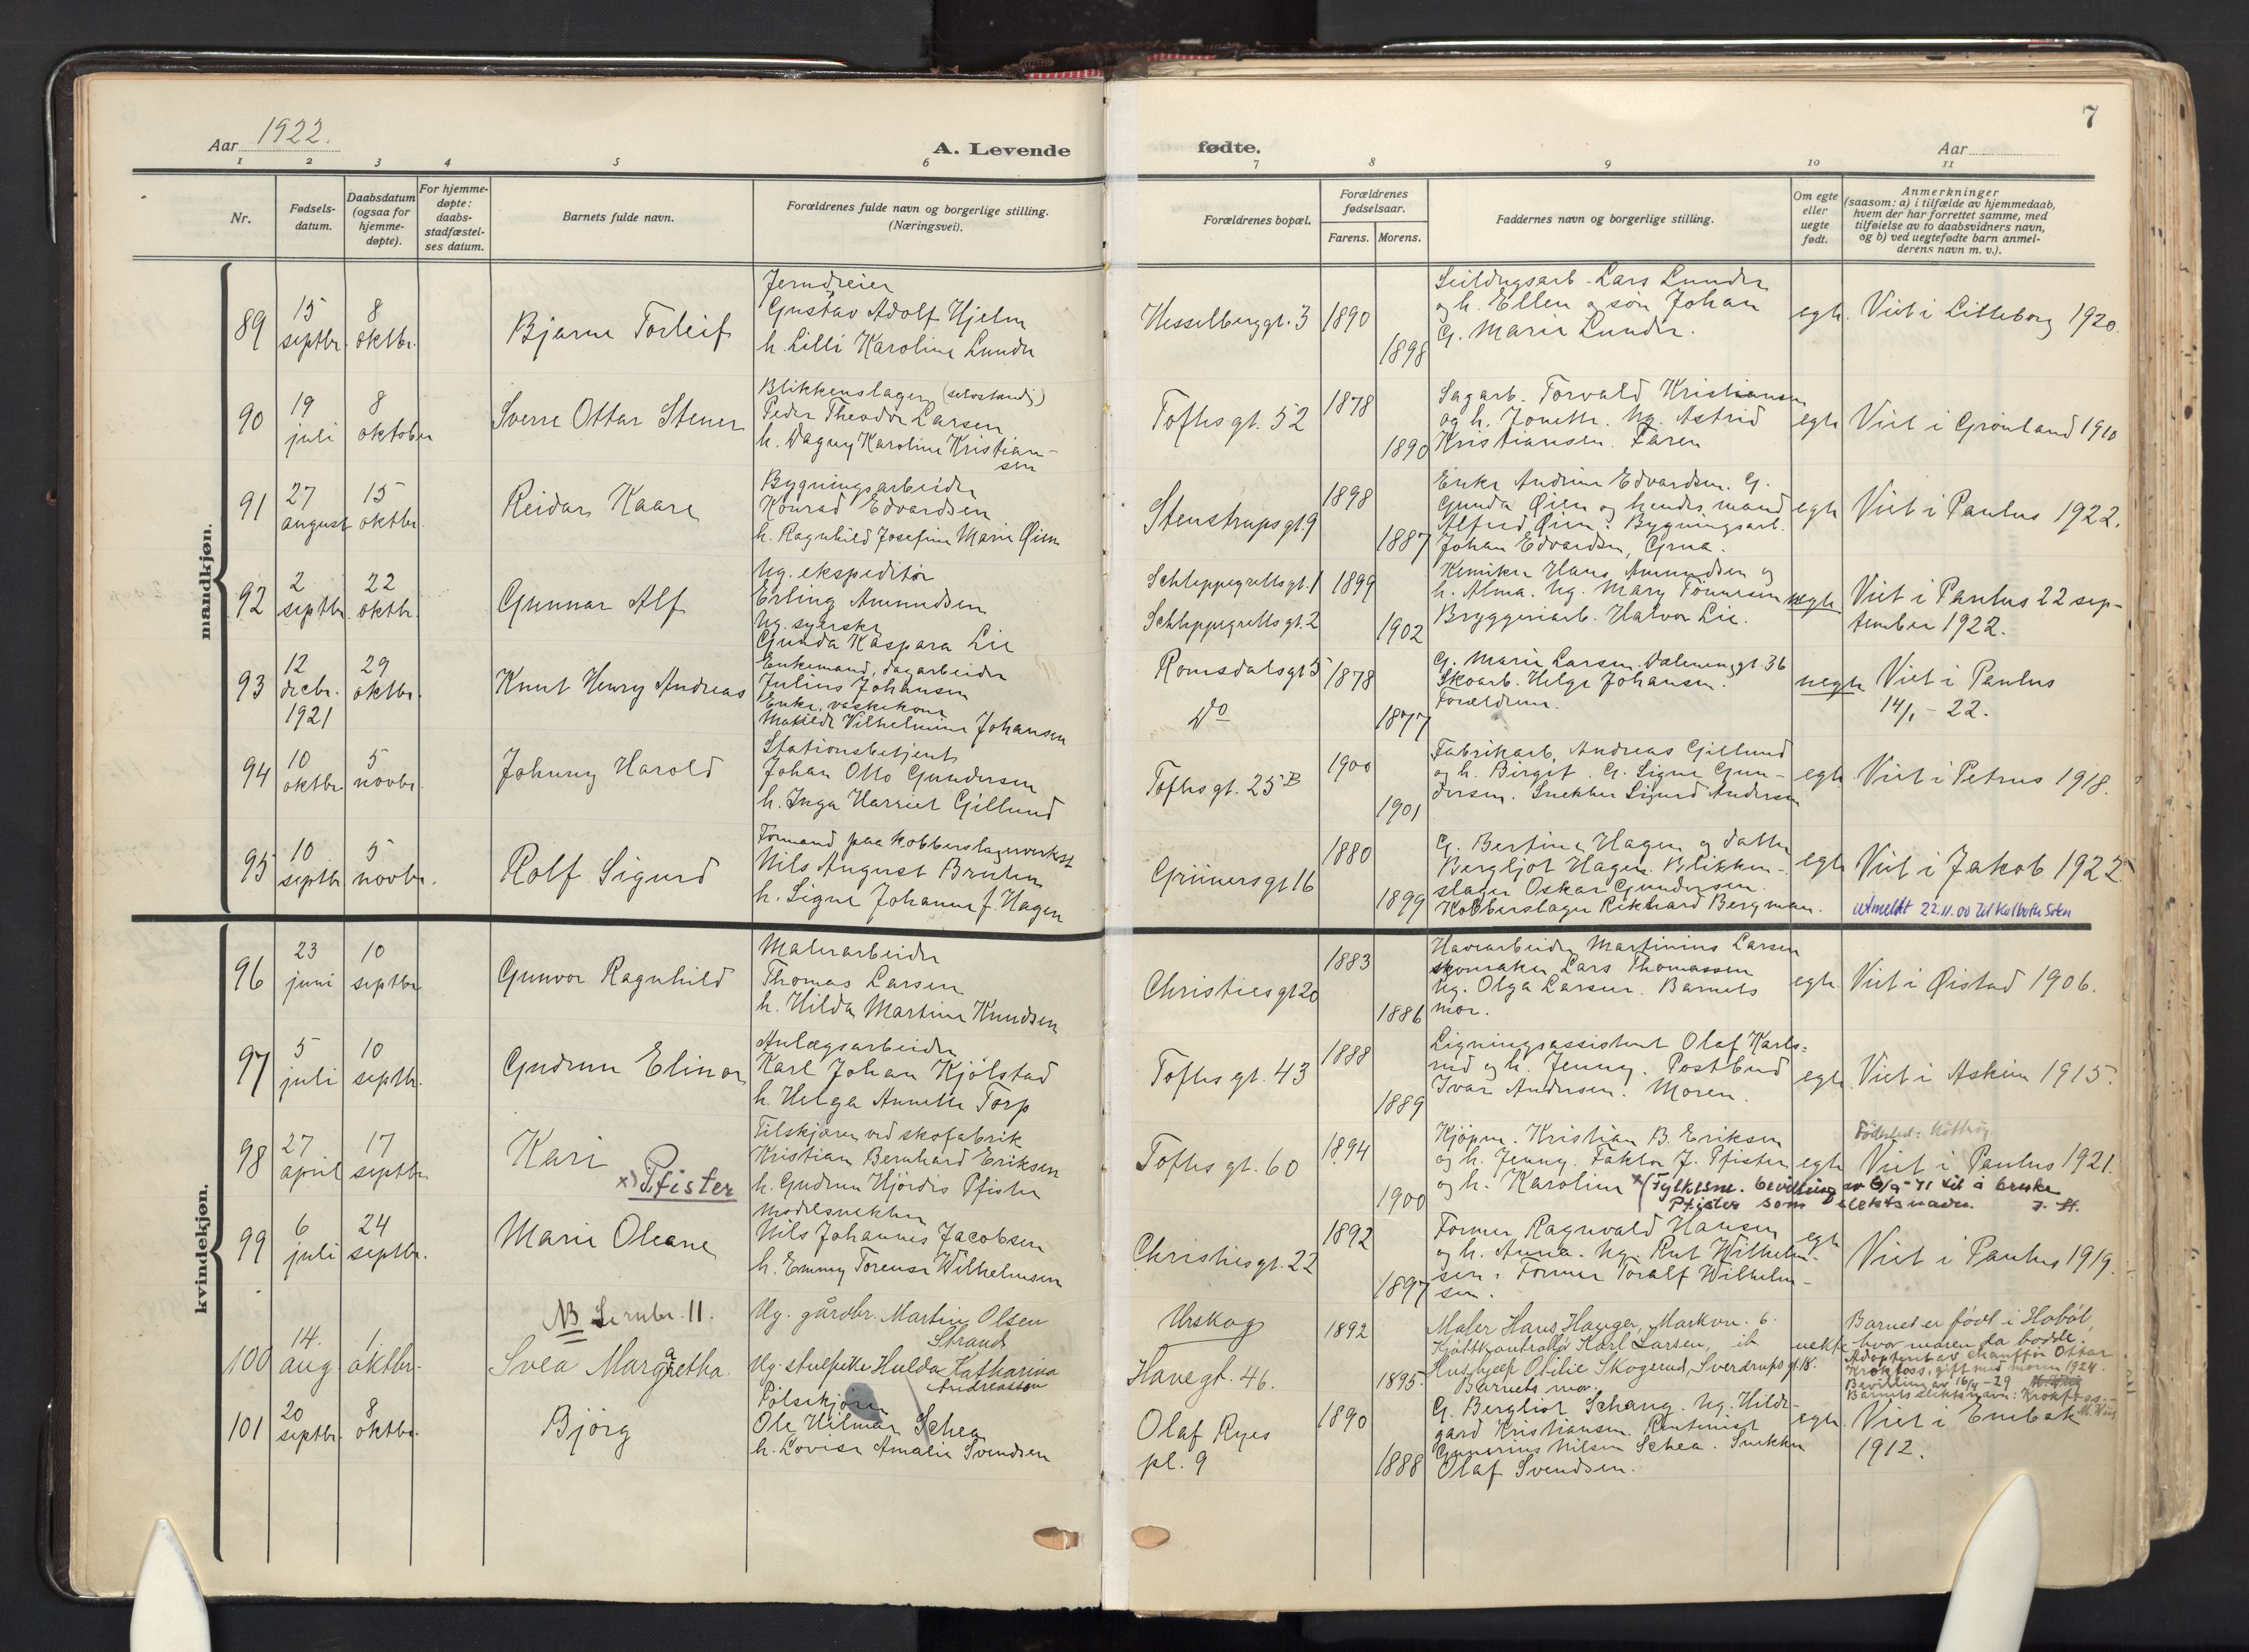 Aar 1922.
A. Levende
fødte.
Aar
7
1 2 3 4 5 6 7 8 9 10 11
Nr.
Fødsels-
datum.
Daabsdatum
(ogsaa for
hjemme-
døpte).
For hjemme-
døpte:
daabs-
stadfæstel-
ses datum.
Barnets fulde navn.
Forældrenes fulde navn og borgerlige stilling.
(Næringsvei).
Forældrenes bopæl.
Forældrenes
fødselsaar.
Farens. Morens.
Faddernes navn og borgerlige stilling.
Om egte
eller
uegte
født.
Anmerkninger
(saasom: a) i tilfælde av hjemmedaab,
hvem der har forrettet samme, med
tilføielse av to daabsvidners navn,
og b) ved uegtefødte barn anmel-
derens navn m. v.).
mandkjøn.
89
15
septbr.
8
oktbr.
Bjarne Torleif
Jerndreier
Gustav Adolf Hjelm
h. Lilli Karoline Lunde
Hesselberggt. 3
1890
1898
Lars Lunder
og h. Ellen og søn Johan
G. Marie Lunder.
egte.
Viet i Lilleborg 1920.
90
19
juli
8
oktober
Sverre Ottar Stener
Blikkenslager (selvstændig)
Peder Theodor Larsen
h. Dagny Karoline Kristian-
sen
Toftes gt. 52
1878
1890
Sagarb. Torvald Kristiansen
og h. Jonette. Ug. Astrid
Kristiansen. Faren
egte
Viet i Grønland 1910
91
27
august
15
oktbr.
Reidar Kaare
Bygningsarbeider
Konrad Edvardsen
h. Ragnhild Josefine Marie Øien
Stenstrupsgt 9
1898
1887
Enke Andrine Edvardsen. G.
Gunda Øien og hendes mand
Alfred Øien. Bygningsarb.
Johan Edvardsen, Grua.
egte
Viet i Paulus 1922.
92
2
septbr.
22
oktbr.
Gunnar Alf
Ug. ekspeditør
Erling Amundsen
Ug. syerske
Gunda Kaspara Lie
Schleppegrellsgt. 1
Schleppegrellsgt. 2
1899
1902
Kemiker Hans Amundsen og
h. Alma. Ug. Mary Tønnesen
Bryggeriarb. Halvor Lie.
uegte
Viet i Paulus 22 sep-
tember 1922.
93
12
decbr.
1921
29
oktbr.
Knut Henry Andreas
Enkemand, dagarbeider
Julius Johansen
Enke, vaskekone
Matilde Vilhelmine Johansen
Romsdalsgt 5
Do
1878
1877
G. Marie Larsen. Dælenenggt. 36
Skoarb. Helge Johansen.
Forældrene.
uegte
Viet i Paulus
14/1 - 22.
94
10
oktbr.
5
novbr.
Johnny Harold
Stationsbetjent
Johan Otto Gundersen
h. Inga Harriet Gillund
Toftes gt. 25 B
1900
1901
Fabrikarb. Andreas Gillund
og h. Birgit. G. Signe Gun-
dersen. Snekker Sigurd Andersen
egte
Viet i Petrus 1918.
95
10
septbr
5
novbr.
Rolf Sigurd
Formand paa kobberslagerverkst
Nils August Bruhn
h. Signe Johanne f. Hagen
Grünersgt 16
1880
1899
G. Bertine Hagen og datter
Bergljot Hagen. Blikken-
slager Oskar Gundersen.
Kobberslager Rikhard Bergman.
egte
Viet i Jakob 1922.
Utmeldt 22.11.00
kvindekjøn.
96
23
juni
10
septbr
Gunvor Ragnhild
Malerarbeider
Thomas Larsen
h. Hilda Martine Knudsen
Christiesgt 20
1883
1886
Havearbeider Martinius Larsen
skomaker Lars Thomassen
Ug. Olga Larsen. Barnets
mor.
egte.
Viet i Øistad 1906.
97
5
juli
10
septbr.
Gudrun Elinor
Anlægsarbeider
Karl Johan Kjölstad
h. Helga Annette Torp
Toftes gt. 43
1888
1889
Ligningsassistent Olaf Karls-
rud og h. Jenny. Postbud
Ivar Andersen. Moren.
egte
Viet i Askim 1915.
98
27
april
17
septbr
Kari
x) Pfister
Tilskjærer ved skofabrik
Kristian Bernhard Eriksen
h. Gudrun Hjördis Pfister
Toftes gt. 60
1894
1900
Kjöpm. Kristian B. Eriksen
og h. Jenny. Faktor J. Pfister
og h. Karoline
egte
Viet i Paulus 1921.
x (Fylkesm. bevilling av 6/9-71 til å bruke
Pfister som slektsnavn.
99
6
juli
24
septbr.
Marie Oleane
Modelsnekker
Nils Johannes Jacobsen
h. Emmy Torense Wilhelmsen
Christiesgt. 22
1892
1897
Former Ragnvald Hansen
og h. Anna. Ug. Rut Wilhelm-
sen. Former Toralf Wilhelm-
sen.
egte
Viet i Paulus 1919.
NB Se nubr. 11.
100
14.
aug
1.
oktbr.
Svea Margaretha.
Ug. gårdbr. Martin Olsen
Strand
Ug. stuepike Hulda Katharina
Andreasson
Urskog
Havegt. 46.
1892
1895.
Maler Hans Hauger, Markvn. 6.
Kjøttkontrollør Karl Larsen, ib
Husbjelp Otilie Skogerud, Sverdrups gt. 18.
Barnets mor.
uekte
Barnet er født i Hobøl,
hvor moren da bodde.
Adoptert av chauffør Ottar
Krokfoss, gift med moren 1924.
Bevilling av 16/4 - 29
Barnets slektsnavn: Krokfoss.
101
20
septbr.
8
oktbr.
Bjørg
Pølsekjører
Ole Hilmar Schea
h. Lovise Amalie Svendsen
Olaf Ryes
pl. 9
1890
1888
G. Bergliot Schang. Ug. Hilde-
gard Kristiansen. Rentenist
Gunerius Nilsen Schea. Snekker
Olaf Svendsen.
egte.
Viet i Enebak
1912.